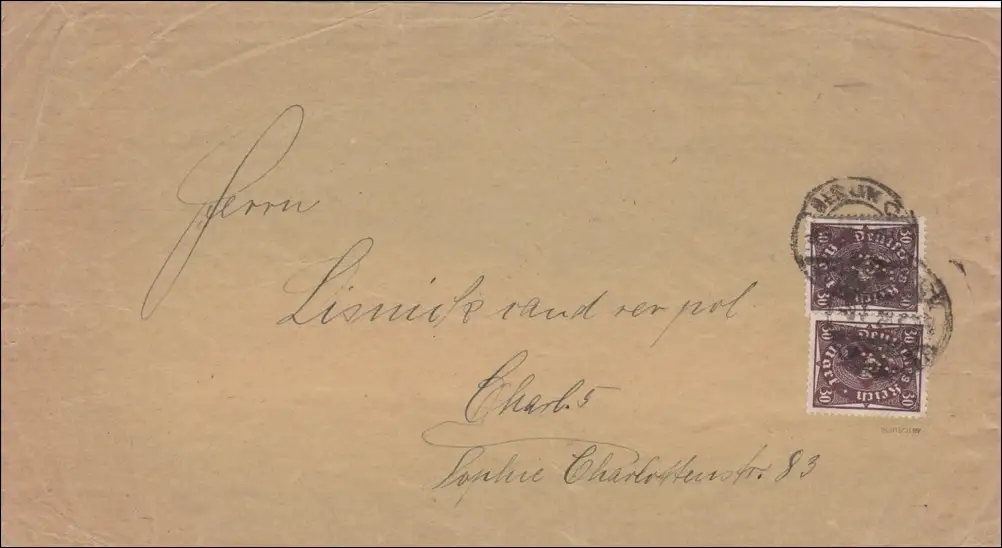 Herrn
Lisnick cand rer pol.
Charl. 5
Sophie Charlottenstr. 83
30 30
Deutsches Reich
30 Mark 30
30 30
Deutsches Reich
30 Mark 30